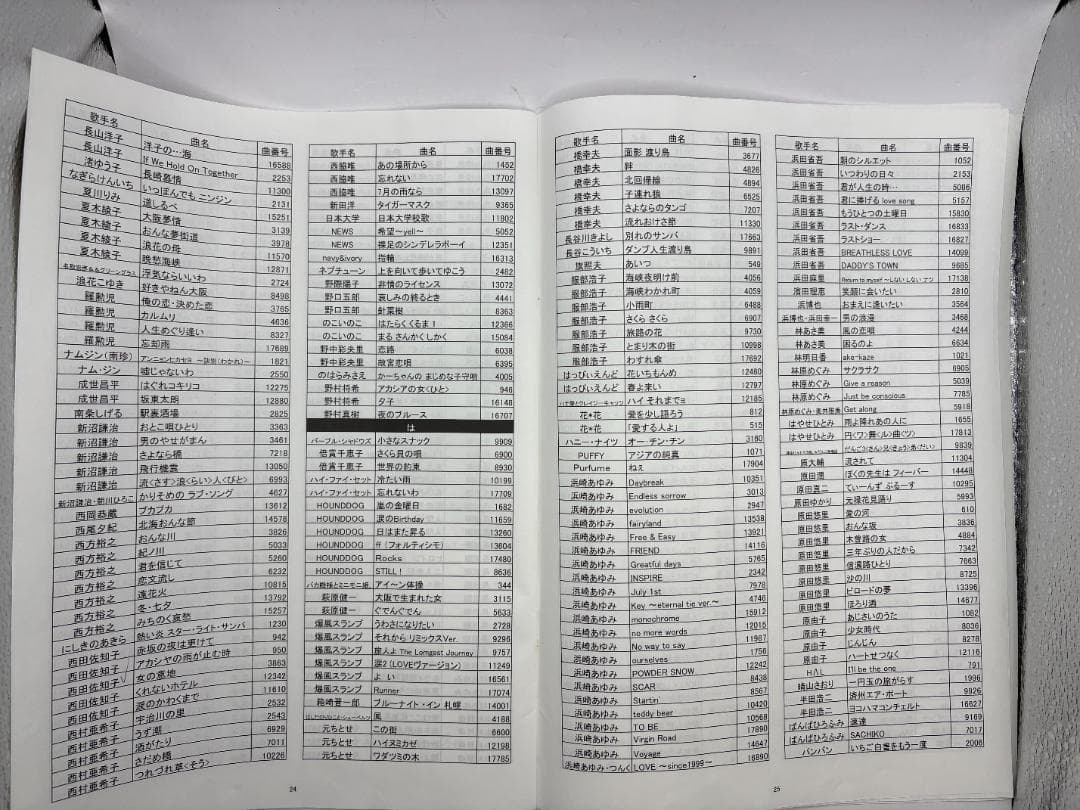 歌手名 曲名 曲番号
長山洋子 洋子の…海 16588
長山洋子 If We Hold On Together 2253
渚ゆう子 長崎慕情 11300
なぎらけんいち いっぽんでも ニンジン 2131
夏川りみ 道しるべ 15251
夏木綾子 大阪夢情 3139
夏木綾子 おんな夢街道 3978
夏木綾子 浪花の母 11570
夏木綾子 晩愁海峡 12871
浮気ならいいわ 2724
浪花こゆき 好きやねん大阪 8498
羅勲児 俺の恋・決めた恋 3765
羅勲児 カルムリ 4636
羅勲児 人生めぐり逢い 8327
羅勲児 忘却雨 17689
ナムジン(南珍) アンニョンヒカセヨ ～訣別(わかれ)～ 1821
ナム・ジン 嘘じゃないわ 2550
成世昌平 はぐれコキリコ 12275
成世昌平 坂東太朗 12880
南条しげる 駅裏酒場 2825
新沼謙治 おとこ唄ひとり 3363
新沼謙治 男のやせがまん 3461
新沼謙治 さよなら橋 7218
新沼謙治 飛行機雲 13050
新沼謙治 流くさす>浪<らい>人<びと> 6993
新沼謙治・新川ひろこ かりそめの ラブ・ソング 4627
西岡恭蔵 プカプカ 13612
西尾夕紀 北海おんな節 14578
西方裕之 おんな川 3826
西方裕之 紀ノ川 5033
西方裕之 君を信じて 5260
西方裕之 恋文流し 6232
西方裕之 遠花火 10815
西方裕之 冬・七夕 13792
西方裕之 みちのく哀愁 15257
にしきのあきら 熱い炎 スター・ライト・サンバ 1230
西田佐知子 赤坂の夜は更けて 942
西田佐知子 アカシヤの雨が止む時 950
西田佐知子 女の意地 3863
西田佐知子 くれないホテル 12342
西田佐知子 涙のかわくまで 11610
西村亜希子 宇治川の里 2532
西村亜希子 うず潮 2543
西村亜希子 酒がたり 6929
西村亜希子 さだめ橋 7011
西村亜希子 つれづれ草<そう> 10226
歌手名 曲名 曲番号
西脇唯 あの場所から 1452
西脇唯 忘れない 17702
西脇唯 7月の雨なら 13097
新田洋 タイガーマスク 9365
日本大学 日本大学校歌 11802
NEWS 希望～yell～ 5052
NEWS 裸足のシンデレラボーイ 12351
navy&ivory 指輪 16313
ネプチューン 上を向いて歩いてゆこう 2482
野際陽子 非情のライセンス 13072
野口五郎 哀しみの終るとき 4441
野口五郎 針葉樹 8363
のこいのこ はたらくくるま！ 12366
のこいのこ まる さんかく しかく 15084
野中彩央里 恋路 6038
野中彩央里 故宮恋唄 6395
のはらみさえ かーちゃんの まじめな子守唄 4005
野村将希 アカシアの女<ひと> 946
野村将希 夕子 16148
野村真樹 夜のブルース 16707
は
パープル・シャドウズ 小さなスナック 9909
倍賞千恵子 さくら貝の唄 6900
倍賞千恵子 世界の約束 8930
ハイ・ファイ・セット 冷たい雨 10199
ハイ・ファイ・セット 忘れないわ 17709
HOUNDDOG 嵐の金曜日 1682
HOUNDDOG 涙のBirthday 11659
HOUNDDOG 日はまた昇る 13260
HOUNDDOG ff (フォルティシモ) 13604
HOUNDDOG Rocks 17480
HOUNDDOG STILL！ 8636
バカ殿様とミニモニ姫。 アイ～ン体操 344
萩原健一 大阪で生まれた女 3115
萩原健一 ぐでんぐでん 5633
爆風スランプ うわさになりたい 2728
爆風スランプ それから リミックスVer. 9296
爆風スランプ 旅人よ The Longest Journey 9757
爆風スランプ 涙2 (LOVEヴァージョン) 11249
爆風スランプ よ い 16561
爆風スランプ Runner 17074
箱崎晋一郎 ブルーナイト・イン 札幌 14001
風 4188
元ちとせ この街 6600
元ちとせ ハイヌミカゼ 12198
元ちとせ ワダツミの木 17785
24
歌手名 曲名 曲番号
橋幸夫 面影 渡り鳥 3677
橋幸夫 絆 4826
橋幸夫 北回帰線 4894
橋幸夫 子連れ狼 6525
橋幸夫 さよならのタンゴ 7207
橋幸夫 流れおけさ節 11330
長谷川きよし 別れのサンバ 17663
長谷こういち ダンプ人生渡り鳥 9891
旗照夫 あいつ 549
服部浩子 海峡夜明け前 4056
服部浩子 海峡わかれ町 4059
服部浩子 小雨町 6488
服部浩子 さくら さくら 6907
服部浩子 旅路の花 9730
服部浩子 とまり木の街 10998
服部浩子 わすれ傘 17692
はっぴいえんど 花いちもんめ 12460
はっぴいえんど 春よ来い 12797
ハナ肇とクレイジーキャッツ ハイ それまでヨ 12185
花*花 愛を少し語ろう 812
花*花 「愛する人よ」 515
ハニー・ナイツ オー・チン・チン 3160
PUFFY アジアの純真 1071
Purfume ねぇ 17904
浜崎あゆみ Daybreak 10351
浜崎あゆみ Endless sorrow 3013
浜崎あゆみ evolution 2947
浜崎あゆみ fairyland 13538
浜崎あゆみ Free & Easy 13921
浜崎あゆみ FRIEND 14116
浜崎あゆみ Greatful days 5765
浜崎あゆみ INSPIRE 2342
浜崎あゆみ July 1st 7978
浜崎あゆみ Key ～eternal tie ver.～ 4746
浜崎あゆみ monochrome 15912
浜崎あゆみ no more words 12015
浜崎あゆみ No way to say 11987
浜崎あゆみ ourselves 1756
浜崎あゆみ POWDER SNOW 12242
浜崎あゆみ SCAR 8438
浜崎あゆみ Startin' 8567
浜崎あゆみ teddy bear 10420
浜崎あゆみ TO BE 10568
浜崎あゆみ Virgin Road 17890
浜崎あゆみ Voyage 14647
浜崎あゆみ・つんく LOVE ～since1999～ 16890
歌手名 曲名 曲番号
浜田省吾 のシルエット 1052
浜田省吾 いつわりの日々 2153
浜田省吾 君が人生の時… 5086
浜田省吾 君に捧げる love song 5157
浜田省吾 もうひとつの土曜日 15830
浜田省吾 ラスト・ダンス 16833
浜田省吾 ラストショー 16827
浜田省吾 BREATHLESS LOVE 14099
浜田省吾 DADDY'S TOWN 9685
浜田麻里 Return to myself ～しない しない ナツ 17138
濱田理恵 笑顔に会いたい 2810
浜博也 おまえに逢いたい 3564
浜博也・浜田幸一 男の浪漫 3468
林あさ美 風の恋唄 4244
林あさ美 困るのよ 6634
林明日香 ake-kaze 1021
林原めぐみ サクラサク 6905
林原めぐみ Give a reason 5039
林原めぐみ Just be conscious 7785
林原めぐみ・奥井雅美 Get along 5918
はやせひとみ 雨よ降れあの人に 1655
はやせひとみ 円<ワ>舞<ル>曲<ツ> 17813
だんご<さん>兄<きょう>弟<だい> 9839
原大輔 流されて 11304
原田潤 ぼくの先生は フィーバー 14448
原田真二 てぃーんず ぶるーす 10295
原田ゆかり 元禄花見踊り 5993
原田悠里 愛の河 610
原田悠里 おんな坂 3836
原田悠里 木曽路の女 4884
原田悠里 三年ぶりの人だから 7342
原田悠里 信濃路ひとり 7663
原田悠里 沙の川 8725
原田悠里 ビロードの夢 13396
原田悠里 ほろり酒 14677
原由子 あじさいのうた 1082
原由子 少女時代 8036
原由子 じんじん 8278
原由子 ハートせつなく 11216
HΛL I'll be the one 791
晴山さおり 一円玉の旅がらす 1996
半田浩二 済州エア・ポート 9926
半田浩二 ヨコハマコンチェルト 16627
ばんばひろふみ 速達 9169
ばんばひろふみ SACHIKO 7017
バンバン いちご白書をもう一度 2006
25